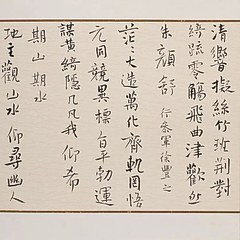 清響擬絲竹班荊對
綺疏零觴飛曲津歡然
朱顏舒 行參軍徐豐之
茫茫大造萬化齊軌罔悟
元同競異標旨平勃運
謀黃綺隱几凡我仰希
期山期水
地主觀山水仰尋幽人